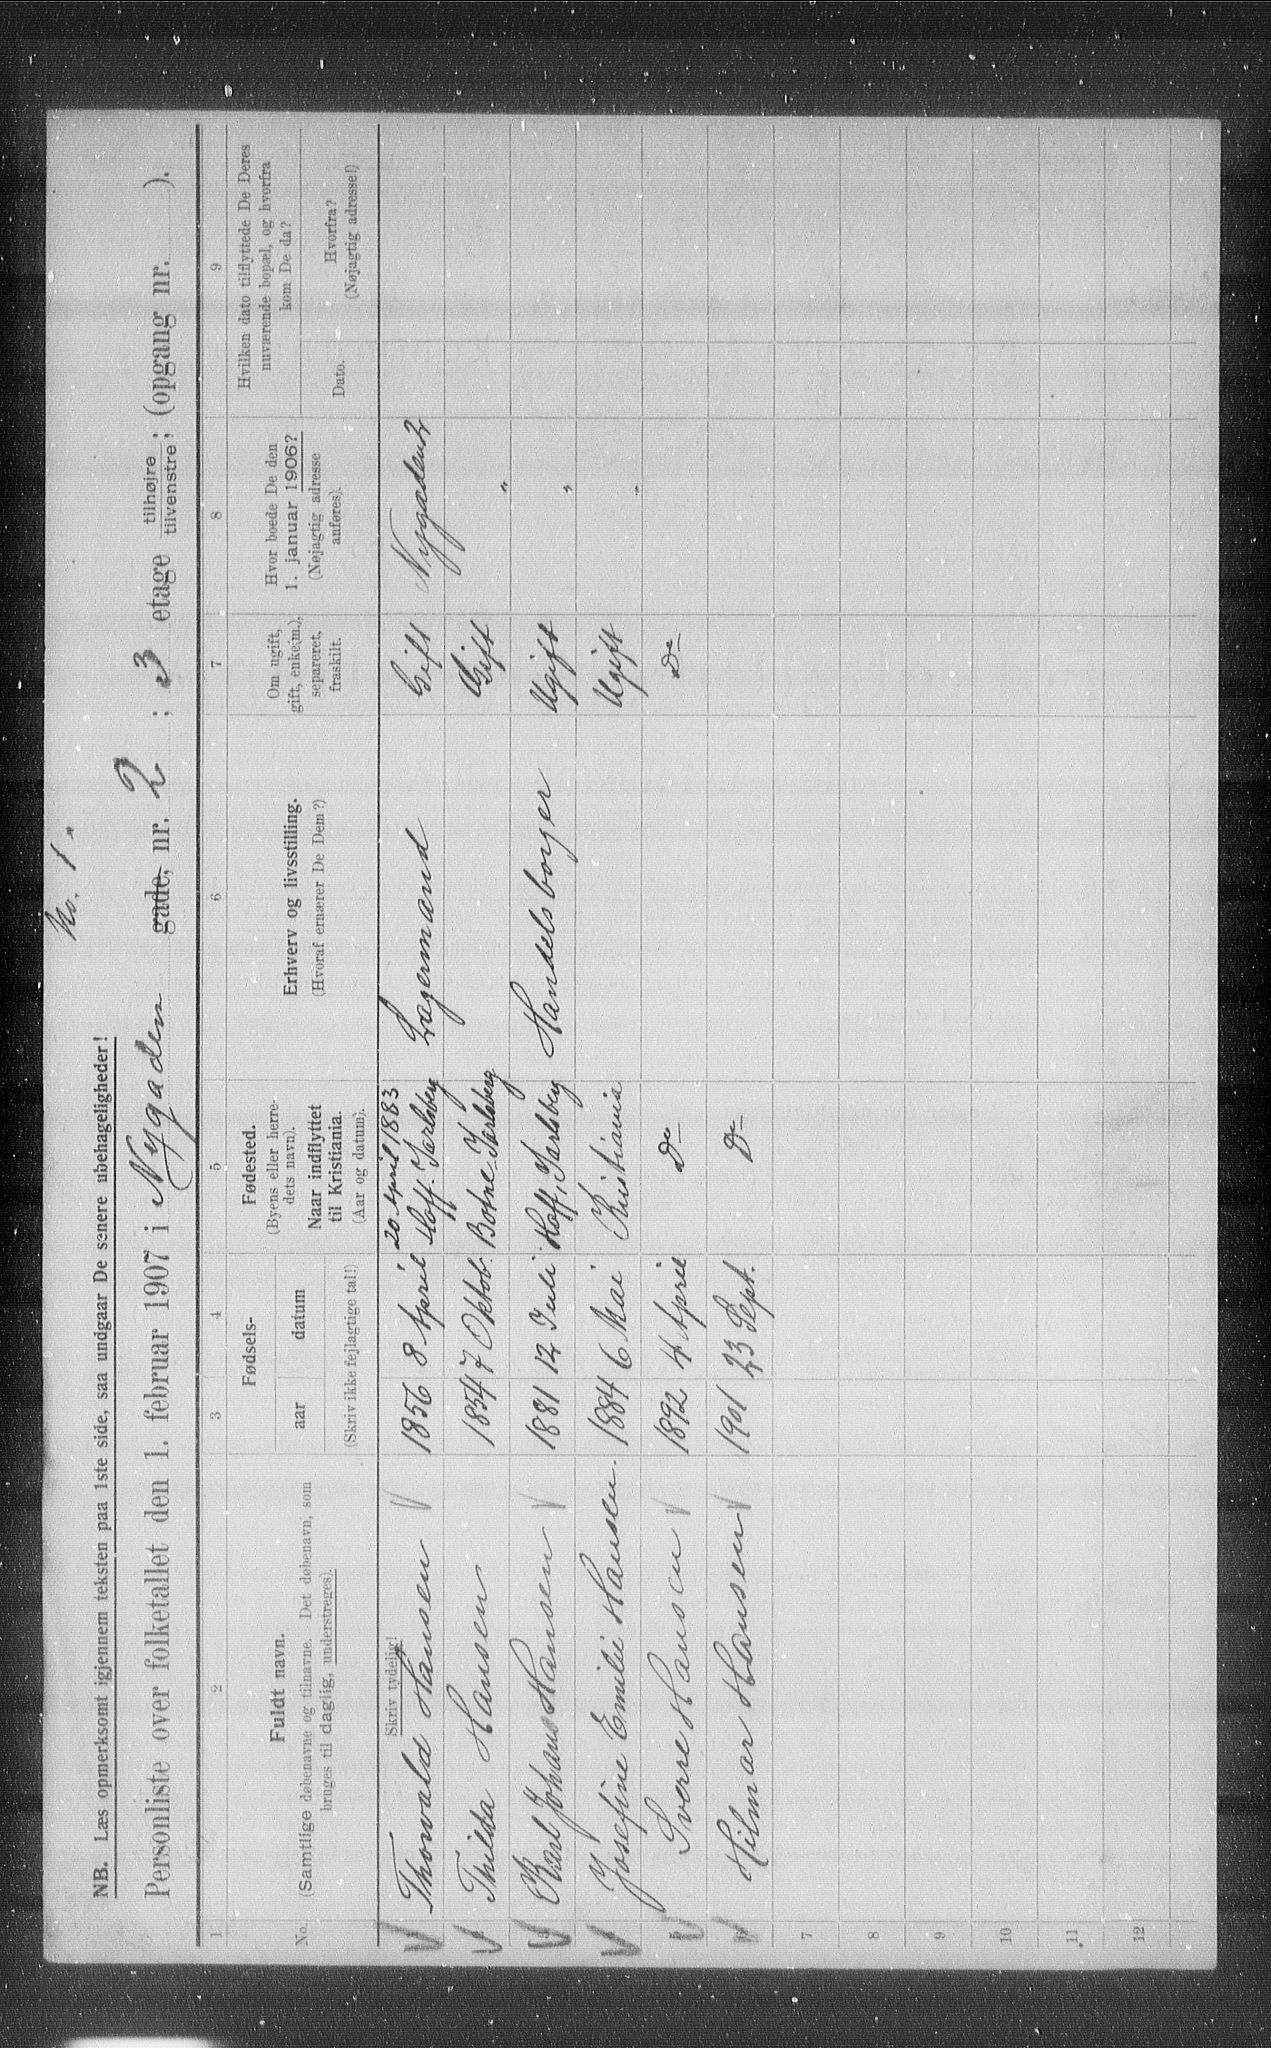 No. 1.
NB. Læs opmerksomt igjennem teksten paa 1ste side, saa undgaar De senere ubehageligheder!
Personliste over folketallet den 1. februar 1907 i Nygaden gade, nr. 2 ; 3 etage tilhøjre / tilvenstre ; (opgang nr. ).
1 2 3 4 5 6 7 8 9
No.
Fuldt navn.
(Samtlige døbenavne og tilnavne. Det døbenavn, som
bruges til daglig, understreges).
Fødsels-
aar datum
(Skriv ikke fejlagtige tal!)
Fødested.
(Byens eller herre-
dets navn).
Naar indflyttet
til Kristiania.
(Aar og datum).
Erhverv og livsstilling.
(Hvoraf ernærer De Dem?)
Om ugift,
gift, enke(m.),
separeret,
fraskilt.
Hvor boede De den
1. januar 1906?
(Nøjagtig adresse
anføres).
Hvilken dato tilflyttede De Deres
nuværende bopæl, og hvorfra
kom De da?
Dato.
Hvorfra?
(Nøjagtig adresse!)
Skriv tydelig!
20 April 1883
Thorvald Hansen 1856 8 April Hoff. Jarlsberg Lagermand Gift
Thilda Hansen 1854 7 Oktob. Botne Jarlsberg Gift "
Karl Johan Hansen 1881 12 Juli Hoff, Jarlsberg Handelsborger Ugift "
Josefine Emilie Hansen. 1884 6 Mai Kristiania Ugift "
Sverre Hansen 1892 4 April Do Do
6 Hilmar Hansen 1901 23 Sept. Do
7
8
9
10
11
12